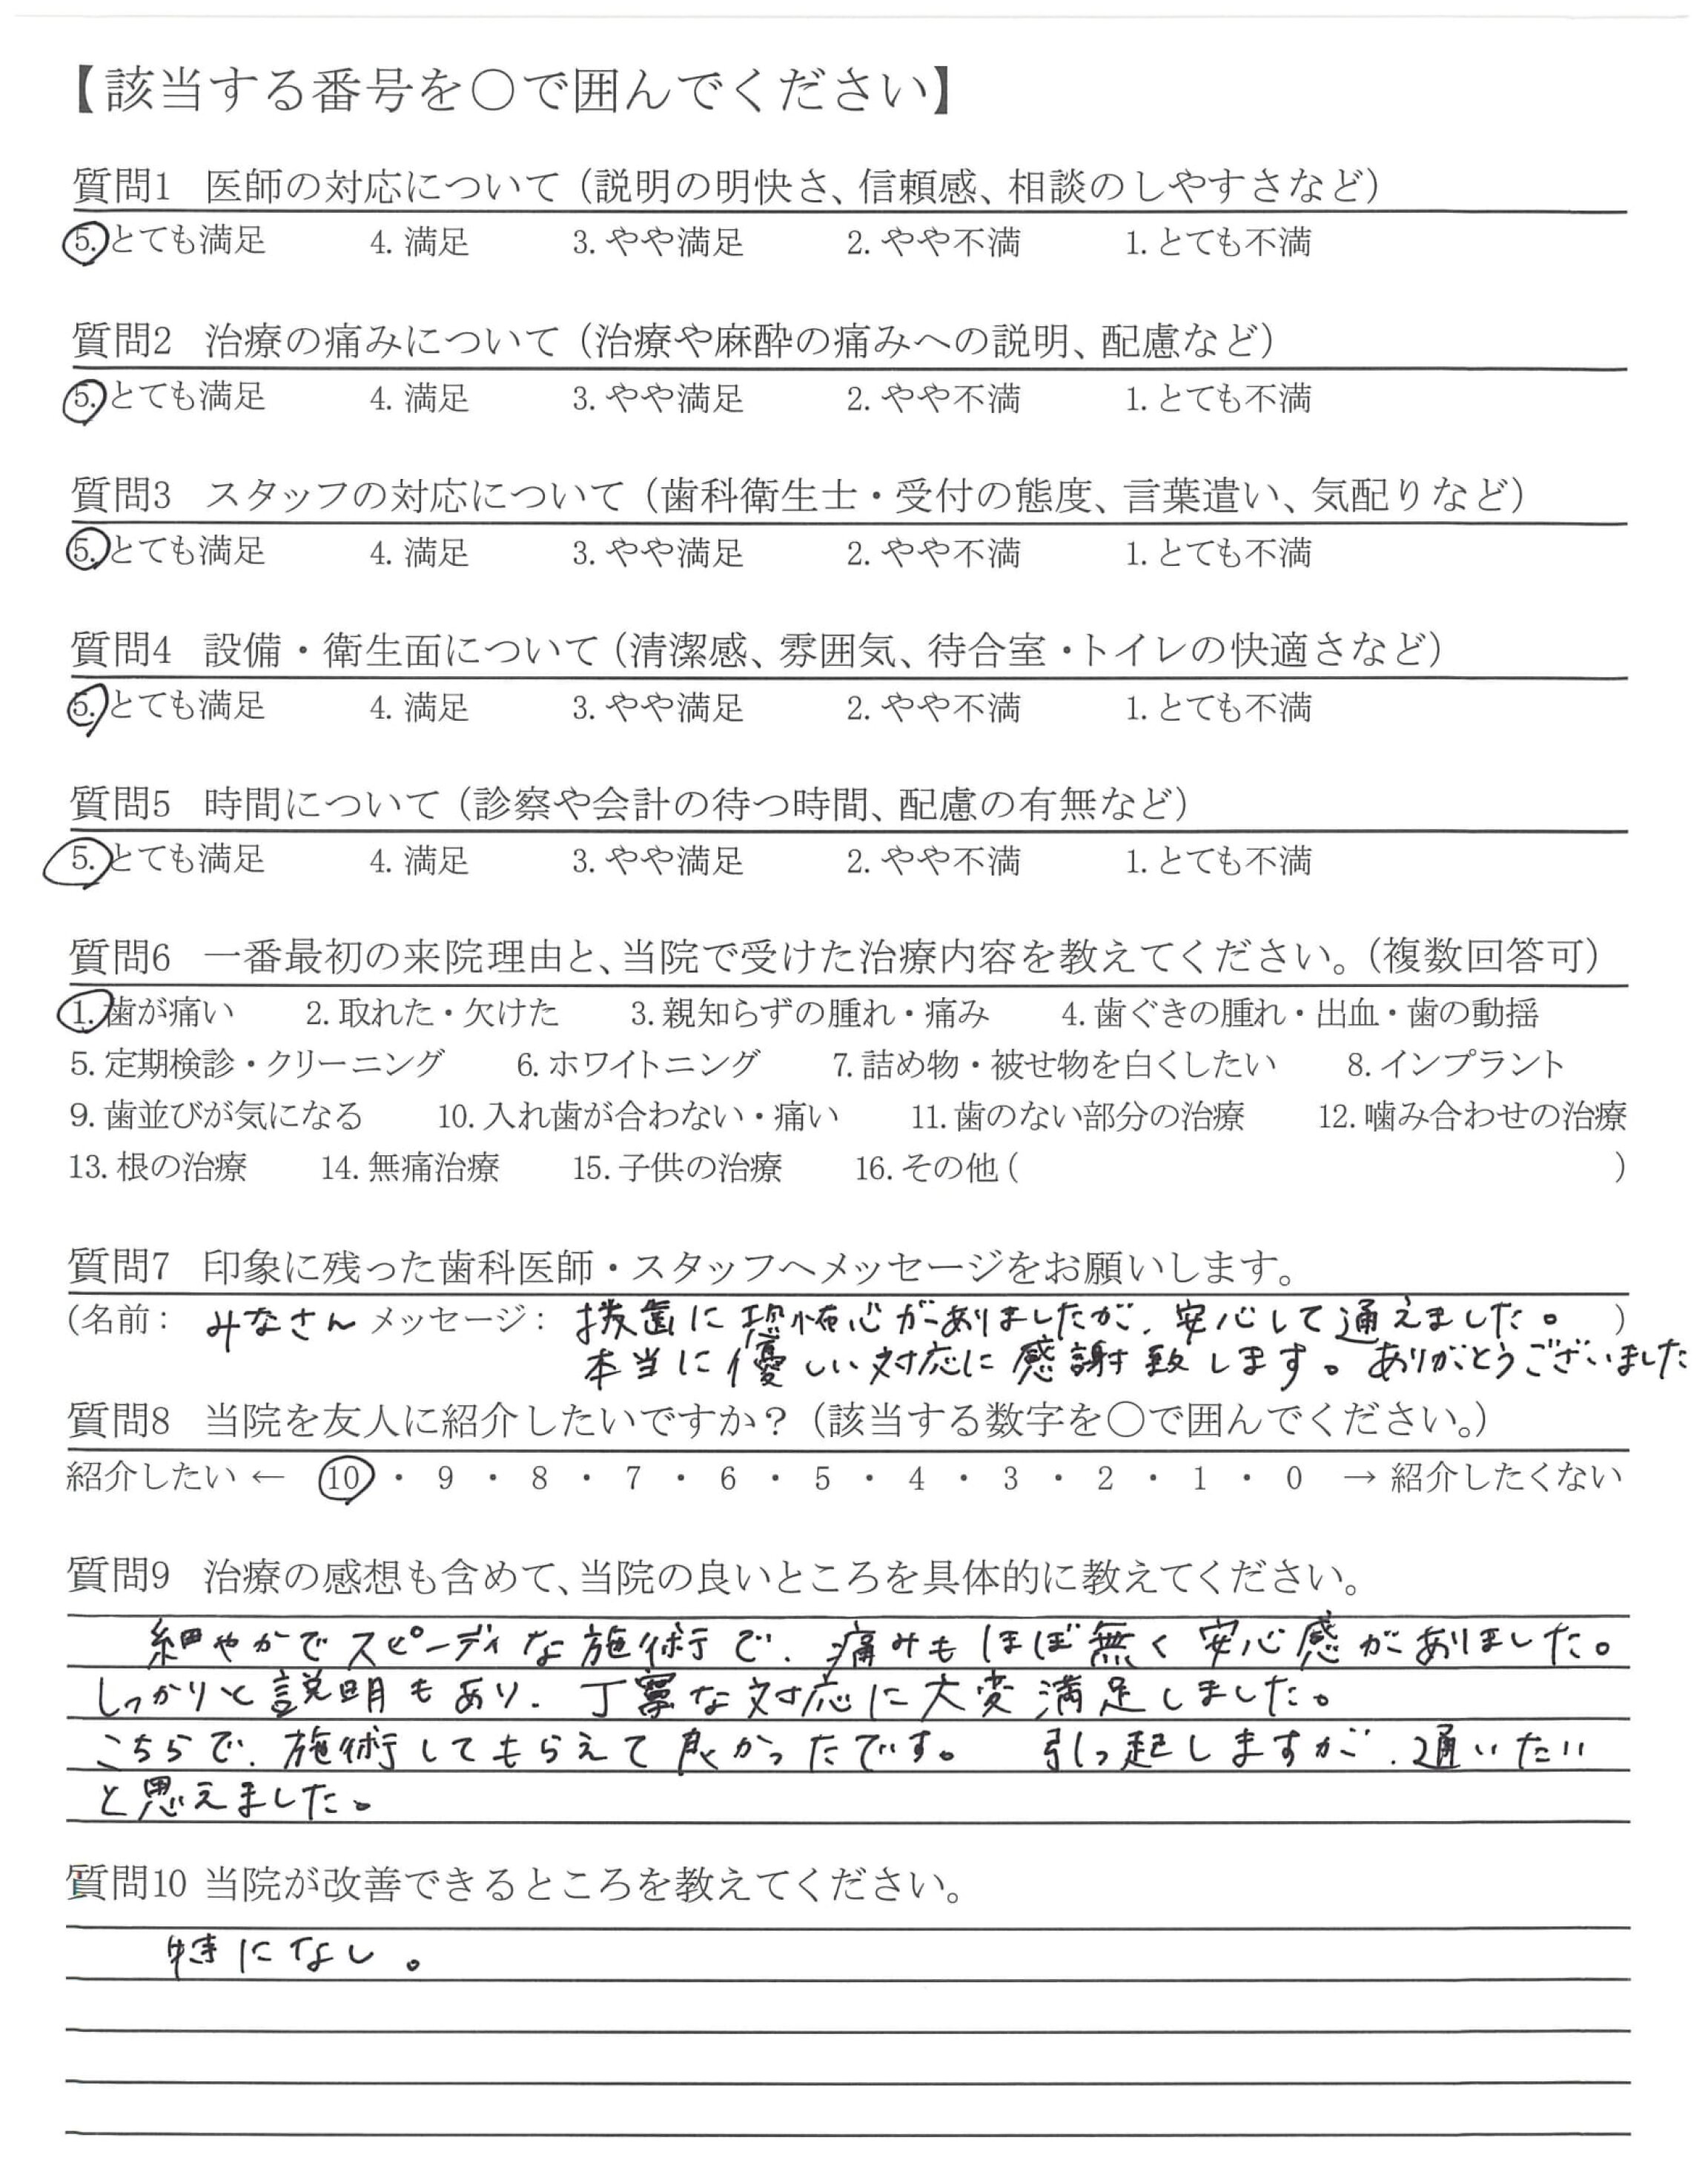 【該当する番号を○で囲んでください】
質問1 医師の対応について（説明の明快さ、信頼感、相談のしやすさなど）
5. とても満足 4. 満足 3. やや満足 2. やや不満 1. とても不満
質問2 治療の痛みについて（治療や麻酔の痛みへの説明、配慮など）
5. とても満足 4. 満足 3. やや満足 2. やや不満 1. とても不満
質問3 スタッフの対応について（歯科衛生士・受付の態度、言葉遣い、気配りなど）
5. とても満足 4. 満足 3. やや満足 2. やや不満 1. とても不満
質問4 設備・衛生面について（清潔感、雰囲気、待合室・トイレの快適さなど）
5. とても満足 4. 満足 3. やや満足 2. やや不満 1. とても不満
質問5 時間について（診察や会計の待つ時間、配慮の有無など）
5. とても満足 4. 満足 3. やや満足 2. やや不満 1. とても不満
質問6 一番最初の来院理由と、当院で受けた治療内容を教えてください。（複数回答可）
1. 歯が痛い 2. 取れた・欠けた 3. 親知らずの腫れ・痛み 4. 歯ぐきの腫れ・出血・歯の動揺
5. 定期検診・クリーニング 6. ホワイトニング 7. 詰め物・被せ物を白くしたい 8. インプラント
9. 歯並びが気になる 10. 入れ歯が合わない・痛い 11. 歯のない部分の治療 12. 噛み合わせの治療
13. 根の治療 14. 無痛治療 15. 子供の治療 16. その他（ ）
質問7 印象に残った歯科医師・スタッフへメッセージをお願いします。
（名前： みなさん メッセージ： 抜歯に恐怖心がありましたが、安心して通えました。 ）
本当に優しい対応に感謝致します。ありがとうございました
質問8 当院を友人に紹介したいですか？（該当する数字を○で囲んでください。）
紹介したい ← 10 ・ 9 ・ 8 ・ 7 ・ 6 ・ 5 ・ 4 ・ 3 ・ 2 ・ 1 ・ 0 → 紹介したくない
質問9 治療の感想も含めて、当院の良いところを具体的に教えてください。
細やかでスピーディな施術で、痛みもほぼ無く安心感がありました。
しっかりと説明もあり、丁寧な対応に大変満足しました。
こちらで、施術してもらえて良かったです。 引っ起しますが、通いたい
と思えました。
質問10 当院が改善できるところを教えてください。
特になし。